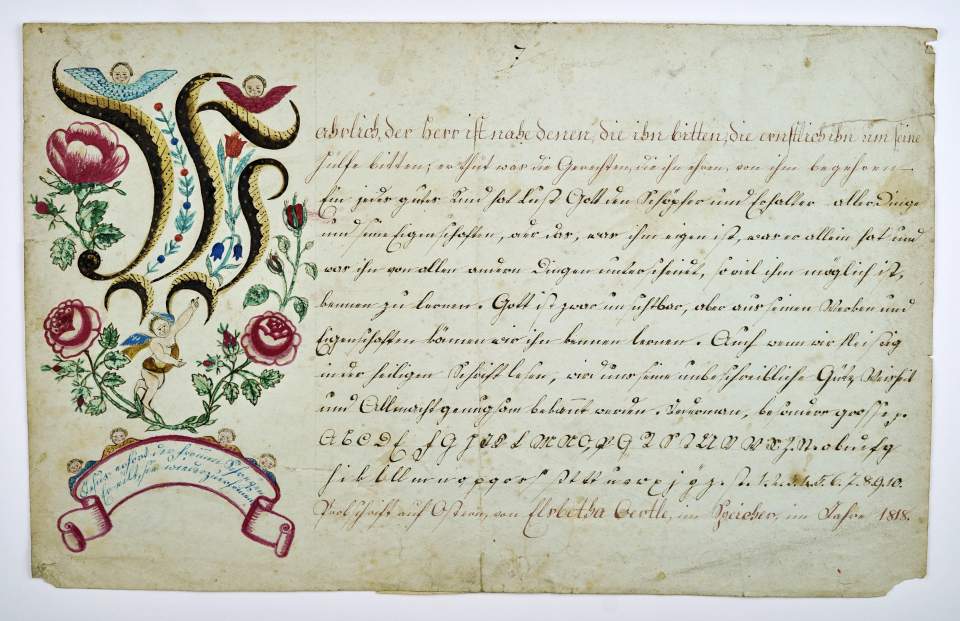 7
W
ahrlich, der Herr ist nahe denen, die ihn bitten, die ernstlich ihn um seine
Hülfe bitten; er thut was die Gerechten, die ihn ehren, von ihm begehren.
Ein jedes gutes Kind hat Lust Gott den Schöpfer und Erhalter aller Dinge
und seine Eigenschaften, wer er, was ihm eigen ist, was er allein hat und
was ihn von allen andern Dingen unterscheidet, so viel ihm möglich ist,
kennen zu lernen. Gott ist zwar unsichtbar, aber aus seinen Werken und
Eigenschaften können wir ihn kennen lernen. Auch wenn wir fleissig
in der heiligen Schrift lesen, wird uns seine unbeschreibliche Güte, Weisheit
und Allmacht genugsam bekannt werden. Jederman, besonders grosse
A B C D E F G H J K L M N O P Q R S T U V W X Y Z
h i k l m n o p q r s t u v w x y z 1. 2. 3. 4. 5. 6. 7. 8. 9. 10.
Probschrift auf Ostern, von Elsbetha Oertle, im Speicher, im Jahre 1818.
Jesus erhört der frommen